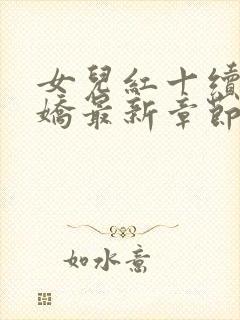 女兒紅十續
嬌最新章節
如水意